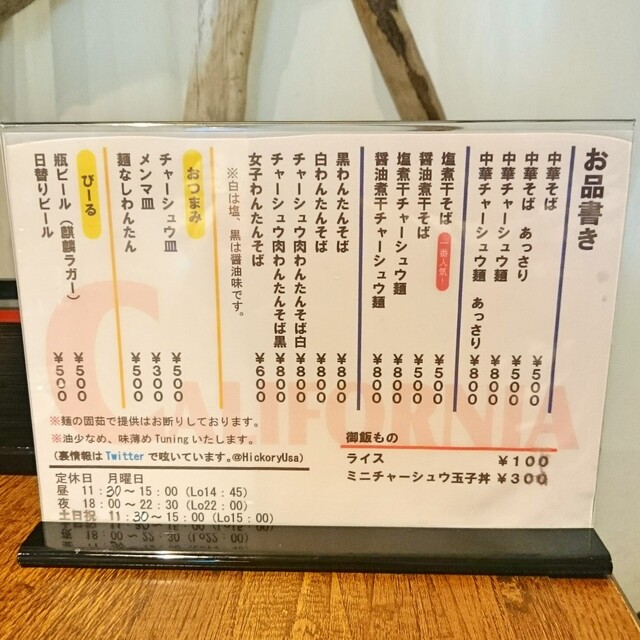 お品書き
中華そば ¥500
中華そば あっさり ¥500
中華チャーシュウ麺 ¥800
中華チャーシュウ麺 あっさり ¥800
塩煮干そば 一番人気! ¥500
醤油煮干そば ¥500
塩煮干チャーシュウ麺 ¥800
醤油煮干チャーシュウ麺 ¥800
黒わんたんそば ¥800
白わんたんそば ¥800
チャーシュウ肉わんたんそば白 ¥800
チャーシュウ肉わんたんそば黒 ¥800
女子わんたんそば ¥600
※白は塩、黒は醤油味です。
おつまみ
チャーシュウ皿 ¥500
メンマ皿 ¥300
麺なしわんたん ¥500
びーる
瓶ビール(麒麟ラガー) ¥500
日替りビール ¥500
CALIFORNIA
※麺の固茹で提供はお断りしております。
※油少なめ、味薄めTuningいたします。
(裏情報はTwitterで呟いています。@HickoryUsa)
定休日 月曜日
昼 11:30~15:00(Lo14:45)
夜 18:00~22:30(Lo22:00)
土日祝 11:30~15:00(Lo15:00)
御飯もの
ライス ¥100
ミニチャーシュウ玉子丼 ¥300